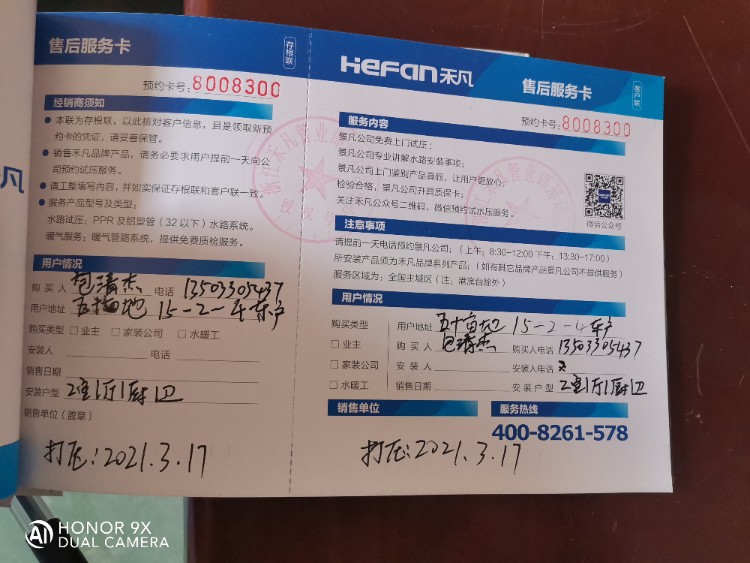 售后服务卡
存根联
预约卡号：8008300
经销商须知
● 本联为存根联，以此核对客户信息，且是领取新预
约卡的凭证，请妥善保管。
● 销售禾凡品牌产品，请务必要求用户提前一天向公
司预约试压服务。
● 请工整填写内容，并如实保证存根联和客户联一致。
● 服务产品型号及类型：
水路试压：PPR 及铝塑管（32 以下）水路系统。
暖气服务：暖气管路系统，提供免费质检服务。
用户情况
购 买 人 包清杰 电话 13503305437
用户地址 五十亩地 15-2-4车户
购买类型 □ 业主 □ 家装公司 □ 水暖工
安装人 电话
销售日期
安装户型 2室1厅1厨1卫
销售单位（盖章）
打压：2021.3.17
HeFan禾凡
售后服务卡
客户联
预约卡号：8008300
服务内容
景凡公司免费上门试压；
景凡公司专业讲解水路安装事项；
景凡公司上门鉴别产品真假，让用户更放心；
检验合格，景凡公司开具质保卡；
关注禾凡公众号二维码，微信预约试水压服务。
微信公众号
注意事项
请提前一天电话预约景凡公司；（上午：8:30-12:00 下午：13:30-17:00）
所安装产品须为禾凡品牌系列产品；（如有其它品牌产品景凡公司不提供服务）
服务区域为：全国主城区（注：港澳台除外）
用户情况
购买类型
□ 业主
□ 家装公司
□ 水暖工
用户地址 五十亩地 15-2-4车户
购 买 人 包清杰 购买人电话 13503305437
安 装 人 安装人电话
销售日期 安 装 户 型 2室1厅1厨1卫
销售单位
服务热线
400-8261-578
打压：2021.3.17
HONOR 9X
DUAL CAMERA